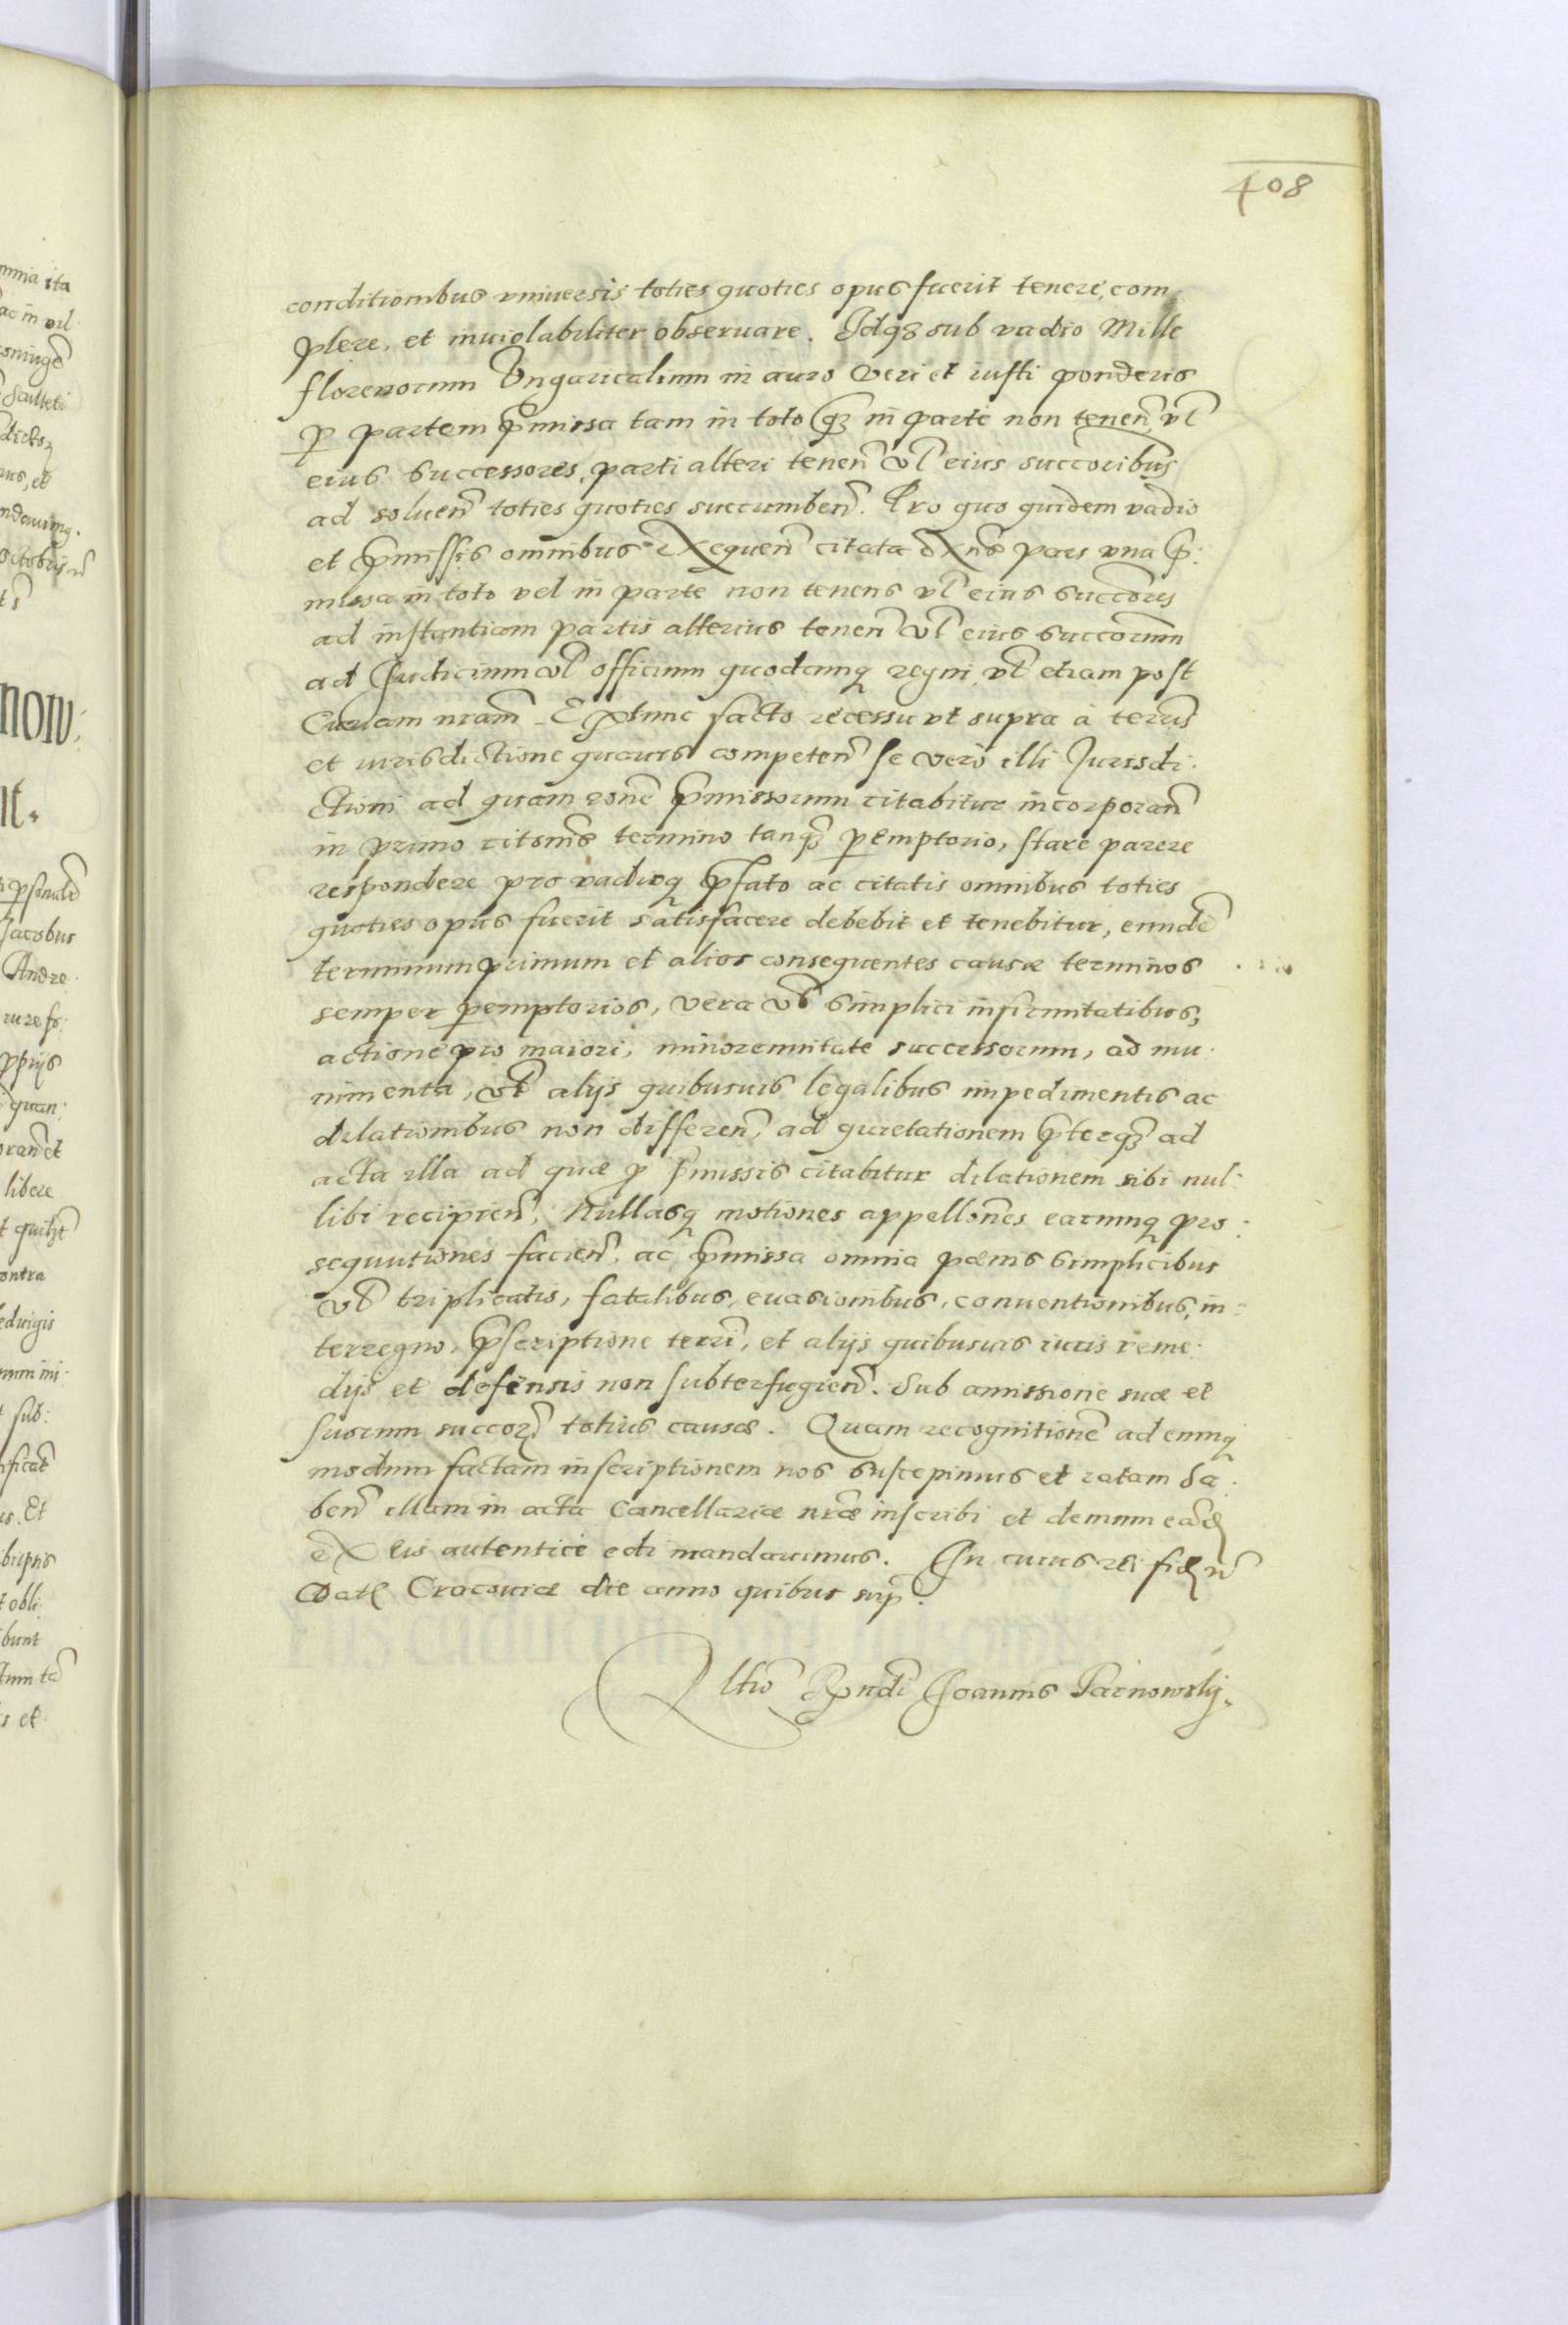 408
conditionibus vniuersis toties quoties opus fuerit tenere, com
plere, et inuiolabiliter obseruare. Idq3 sub vadio Mille
florenorum Vngaricalium in auro veri et iusti ponderis
p partem pmissa tam in toto q3 in parte non tenen vl
eius successores, parti alteri tenen vl eius succoribus
ad soluen toties quoties succumben. Pro quo quidem vadio
et pmissis omnibus exequen citata pars vna p:
missa in toto vel in parte non tenens vl eius succores
ad instantiam partis alterius tenen vl eius succorum
ad Judicium vl officium quodcunq regni, vl etiam post
Curiam nram Extunc facto recessu vt supra à terris
et iurisdictione quauis competen se vero illi Jurisdi:
ctioni ad quam rone pmissorum citabitur incorporan
in primo citonis termino tanq3 pemptorio, stare parere
respondere pro vadioq pfato ac citatis omnibus toties
quoties opus fuerit satisfacere debebit et tenebitur, eunde
terminum primum et alios consequentes causæ terminos
semper pemptorios, vera vl simplici infirmitatibus,
actione pro maiori, minorennitate successorum, ad mu:
nimenta, vl alijs quibusuis legalibus impedimentis ac
dilationibus non differen, ad quietationem pterq3 ad
acta illa ad quæ p pmissis citabitur dilationem sibi nul:
libi recipien, Nullasq motiones appellones earumq pro:
sequutiones facien, ac pmissa omnia pænis simplicibus
vl triplicatis, fatalibus, euasionibus, conuentionibus, in:
terregno, pscriptione terri, et alijs quibusuis iuris reme:
dijs et defensis non subterfugien. Sub amissione suæ et
suorum succor totius causæ. Quam recognitione ad eumq
modum factam inscriptionem nos suscepimus et ratam ha:
ben illam in acta Cancellariæ nræ inscribi et demum ead
ex eis autenticè edi mandauimus. In cuius rei fid n
Dat Cracouiæ die anno quibus sup.
Rltio Rndi Joannis Tarnowsky.